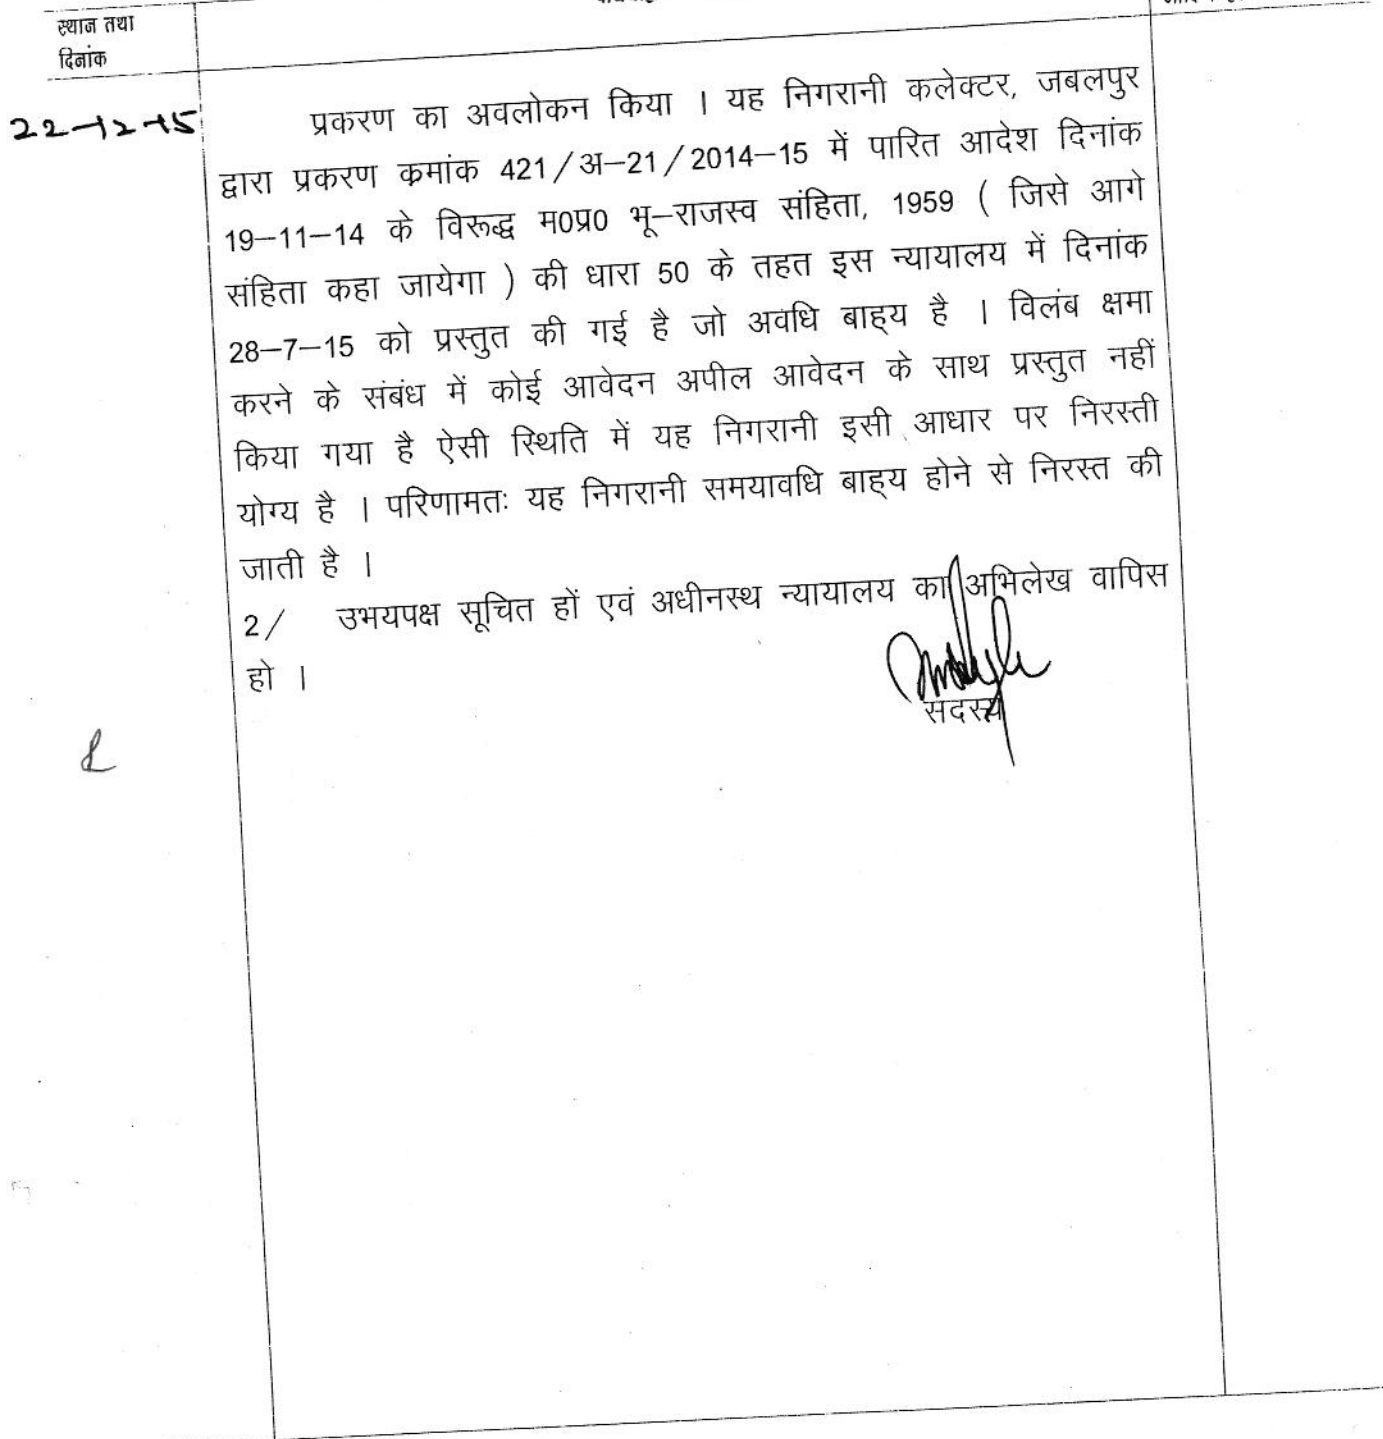 स्थान तथा
दिनांक
22-12-15
प्रकरण का अवलोकन किया । यह निगरानी कलेक्टर, जबलपुर
द्वारा प्रकरण क्रमांक 421/अ-21/2014-15 में पारित आदेश दिनांक
19-11-14 के विरूद्ध म0प्र0 भू-राजस्व संहिता, 1959 ( जिसे आगे
संहिता कहा जायेगा ) की धारा 50 के तहत इस न्यायालय में दिनांक
28-7-15 को प्रस्तुत की गई है जो अवधि बाह्य है । विलंब क्षमा
करने के संबंध में कोई आवेदन अपील आवेदन के साथ प्रस्तुत नहीं
किया गया है ऐसी स्थिति में यह निगरानी इसी आधार पर निरस्ती
योग्य है । परिणामतः यह निगरानी समयावधि बाह्य होने से निरस्त की
जाती है ।
2/ उभयपक्ष सूचित हों एवं अधीनस्थ न्यायालय का अभिलेख वापिस
हो ।
सदस्य